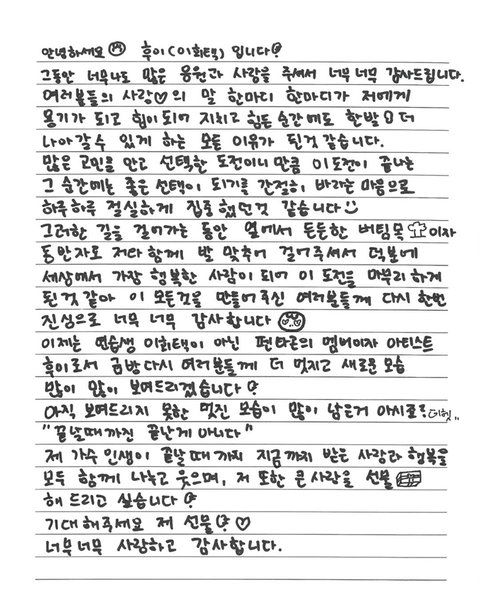 안녕하세요 후이(이회택) 입니다!
그동안 너무나도 많은 응원과 사랑을 주셔서 너무너무 감사드립니다.
여러분들의 사랑♡의 말 한마디 한마디가 저에게
용기가 되고 힘이되어 지치고 힘든 순간에도 한발 더
나아갈수 있게 하는 모든 이유가 된것 같습니다.
많은 고민을 안고 선택한 도전이니 만큼 이도전이 끝나는
그 순간에는 좋은 선택이 되기를 간절히 바라는 마음으로
하루하루 절실하게 집중했던것 같습니다
그러한 길을 걸어가는 동안 옆에서 든든한 버팀목 이자
동반자로 저와함께 발 맞추어 걸어주셔서 덕분에
세상에서 가장 행복한 사람이 되어 이 도전을 마무리 하게
된것 같아 이 모든것을 만들어주신 여러분들께 다시 한번
진심으로 너무 너무 감사합니다
이제는 연습생 이회택이 아닌 펜타곤의 멤버이자 아티스트
후이로서 금방다시 여러분들께 더 멋지고 새로운 모습
많이 많이 보여드리겠습니다!
아직 보여드리지 못한 멋진 모습이 많이 남은거 아시죠? 데헷..
"끝날때까진 끝난게 아니다"
제 가수 인생이 끝날때까지 지금까지 받은 사랑과 행복을
모두 함께 나누고 웃으며, 저 또한 큰 사랑을 선물
해 드리고 싶습니다!
기대해주세요 제 선물! ♡
너무너무 사랑하고 감사합니다.